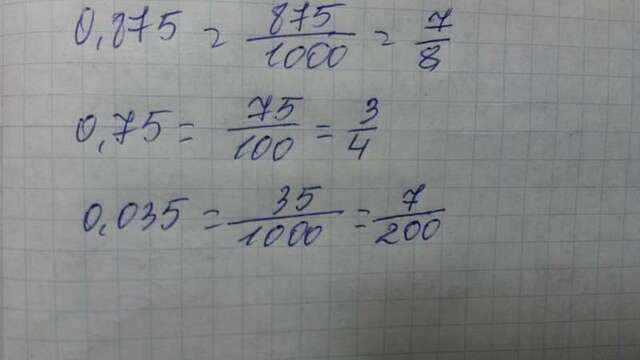 0,875 = 875/1000 = 7/8
0,75 = 75/100 = 3/4
0,035 = 35/1000 = 7/200